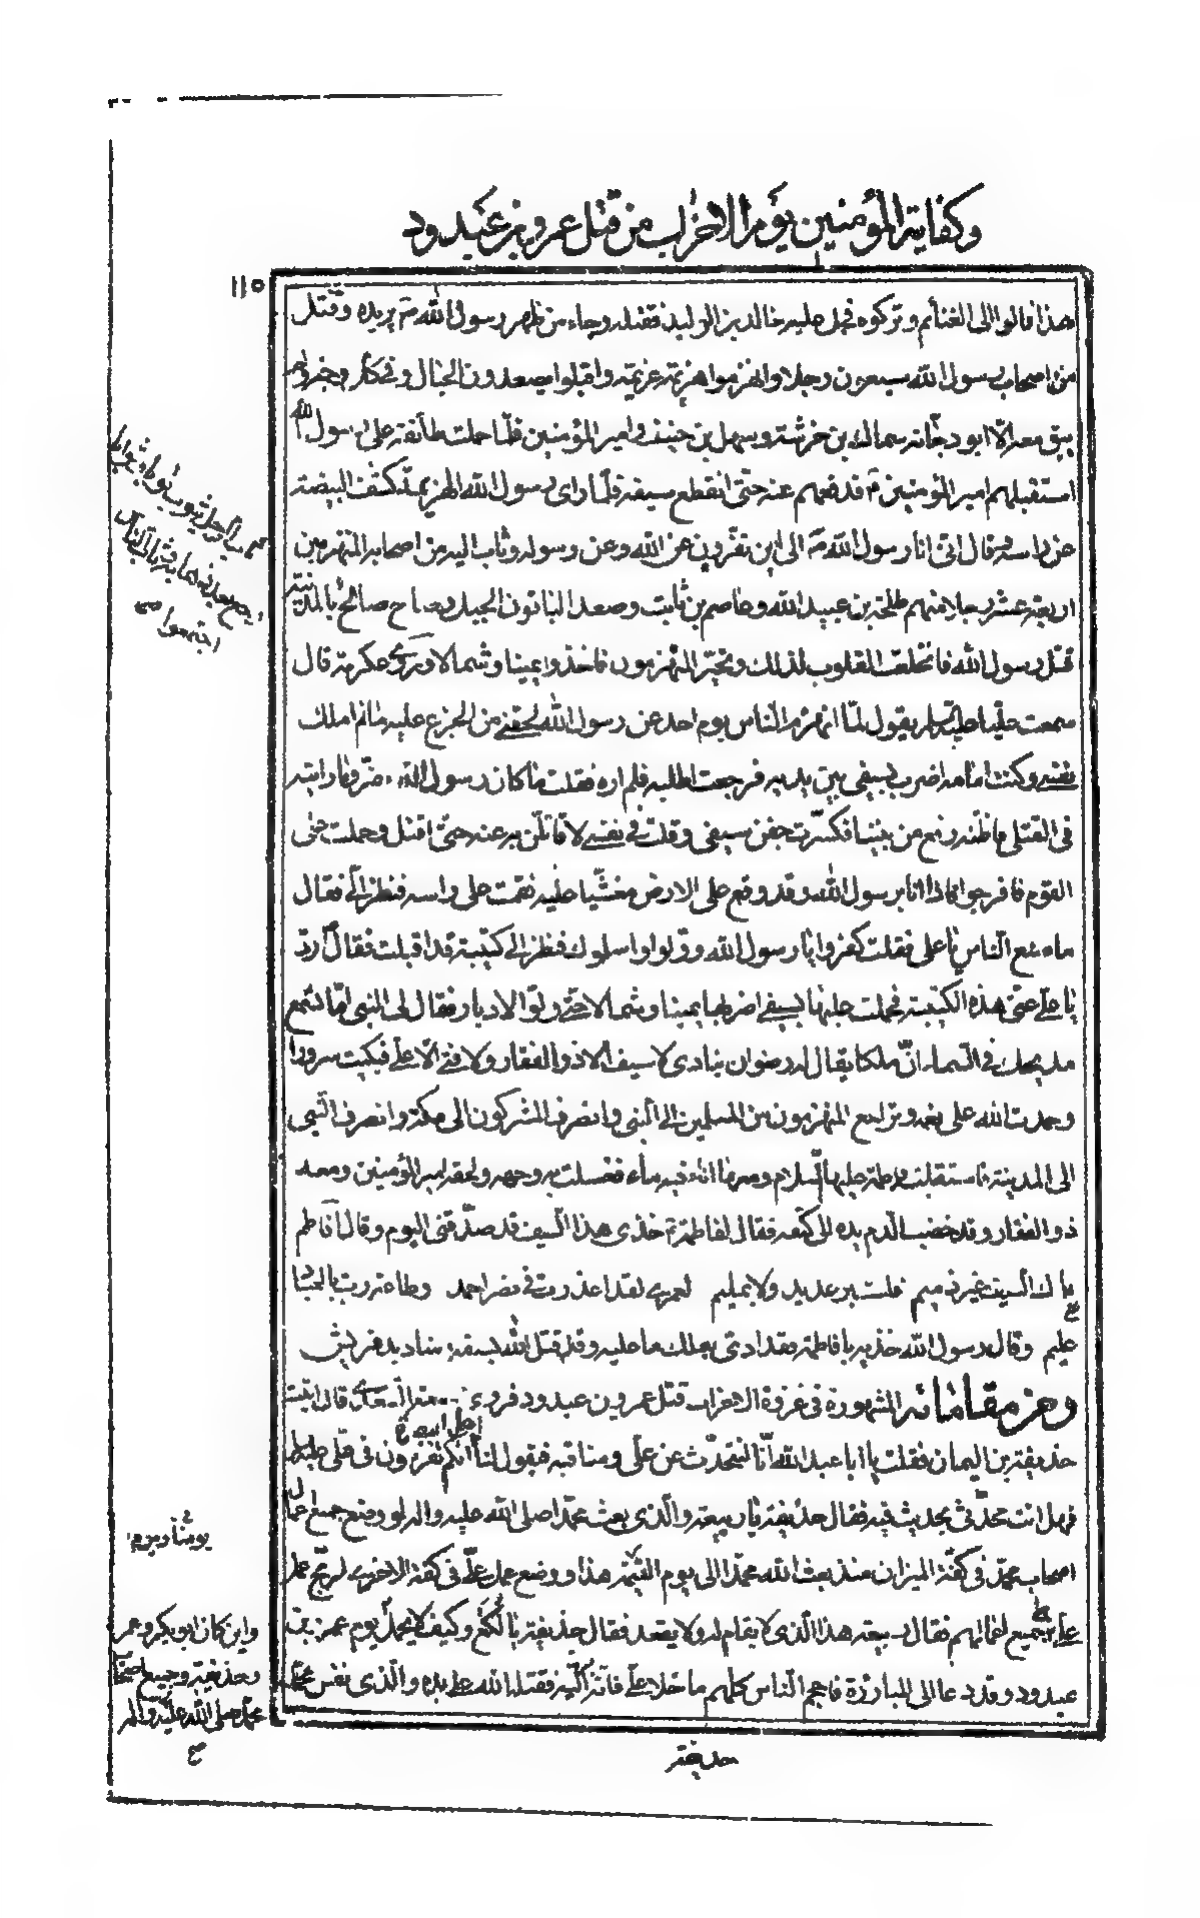 وكفاية المؤمنين يوم الاحزاب من قتل عمرو بن عبدود
١١٥
هذا فمالوا الى الغنائم وتركوه فحمل عليه خالد بن الوليد فقتله وجاء من ظهر رسول الله ص يريده وقتل
من اصحاب رسول الله سبعون رجلا وانهزموا هزيمة عظيمة واقبلوا يصعدون الجبال وفي كل وجه ولم
يبق معه الا ابو دجانة سماك بن خرشة وسهل بن حنيف وامير المؤمنين فلما حملت طائفة على رسول الله
استقبلهم امير المؤمنين ع فدفعهم عنه حتى انقطع سيفه فلما راى رسول الله الهزيمة كشف البيضة
عن راسه وقال انى انا رسول الله ص الى اين تفرون عن الله وعن رسوله وثاب اليه من اصحابه المنهزمين
اربعة عشر رجلا منهم طلحة بن عبيد الله وعاصم بن ثابت وصعد الباقون الجبل وصاح صائح بالمدينة
قتل رسول الله فانخلعت القلوب لذلك وتحير المنهزمون فاخذوا يمينا وشمالا وروى عكرمة قال
سمعت عليا عليه السلام يقول لما انهزم الناس يوم احد عن رسول الله لحقنى من الجزع عليه ما لم املك
نفسى وكنت امامه اضرب بسيفى بين يديه فرجعت اطلبه فلم اره فقلت ما كان رسول الله ليفر وما رايته
فى القتلى فاظنه رفع من بيننا فكسرت جفن سيفى وقلت فى نفسى لاقاتلن به عنه حتى اقتل وحملت على
القوم فافرجوا فاذا انا برسول الله وقد وقع على الارض مغشيا عليه فقمت على راسه فنظر الى فقال
ما صنع الناس يا على فقلت كفروا يا رسول الله وولوا واسلموك فنظر الى كتيبة قد اقبلت فقال رد
يا على عنى هذه الكتيبة فحملت عليها بسيفى اضربها يمينا وشمالا حتى ولوا الادبار فقال لى النبى اما تسمع
مديحك فى السماء ان ملكا يقال له رضوان ينادى لا سيف الا ذو الفقار ولا فتى الا على فبكيت سرورا
وحمدت الله على نعمه وتراجع المنهزمون من المسلمين الى النبى وانصرف المشركون الى مكة وانصرف النبى
الى المدينة فاستقبلته فاطمة عليها السلام ومعها اناء فيه ماء فغسلت به وجهه ولحقه امير المؤمنين ومعه
ذو الفقار وقد خضب الدم يده الى كتفه فقال لفاطمة ع خذى هذا السيف قد صدقنى اليوم وقال افاطم
هاك السيف غير ذميم فلست برعديد ولا بمليم لعمرى لقد اعذرت فى نصر احمد وطاعة رب بالعباد
عليم وقال رسول الله خذيه يا فاطمة فقد ادى بعلك ما عليه وقد قتل الله بسيفه صناديد قريش
ومن مقاماته المشهورة فى غزوة الاحزاب قتل عمرو بن عبدود فروى قال اتيت
حذيفة بن اليمان فقلت يا ابا عبد الله انا لنتحدث عن على ومناقبه فيقول لنا اهل البصرة انكم تفرطون فى على
فهل انت محدثى بحديث فيه فقال حذيفة يا ربيعة والذى بعث محمدا صلى الله عليه واله لو وضع جميع اعمال
اصحاب محمد فى كفة الميزان منذ بعث الله محمدا الى يوم القيمة هذا ووضع عمل على فى كفة الاخرى لرجح عمل
على على جميع اعمالهم فقال ربيعة هذا الذى لا يقام له ولا يقعد فقال حذيفة يا لكع وكيف لا يحمل يوم عمرو بن
عبدود وقد دعا الى المبارزة فاحجم الناس كلهم ما خلا على فانه برز اليه فقتله الله على يده والذى نفس
يرجع
اجتمعوا
يومنا
واين كان ابو بكر وعمر
وحذيفة وجميع اصحاب
محمد صلى الله عليه واله
حذيفة